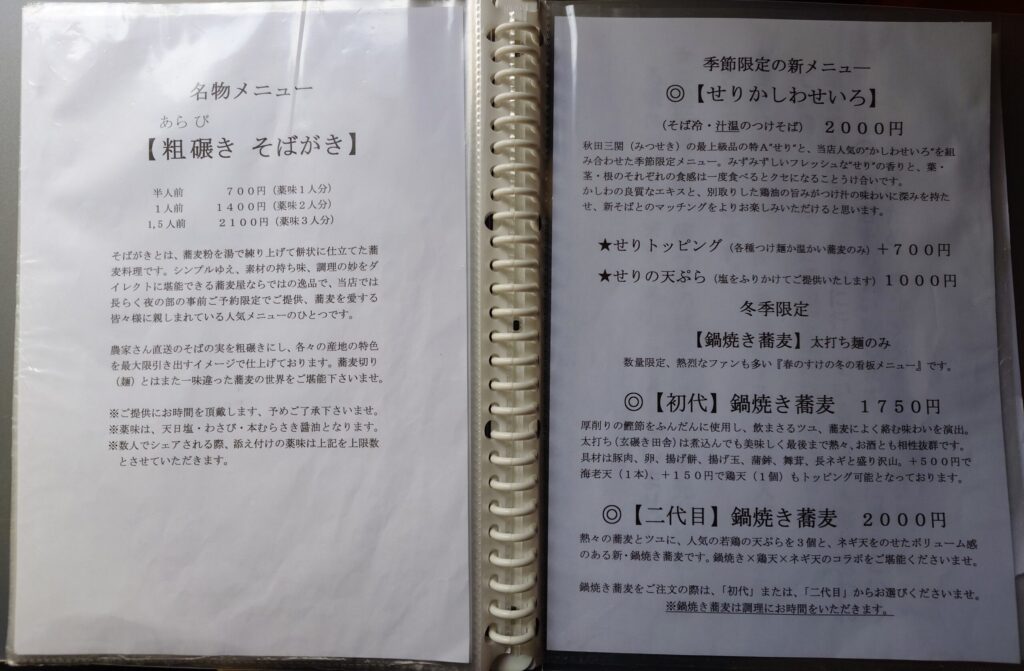 名物メニュー
あらび
【粗碾き そばがき】
半人前 700円（薬味1人分）
1人前 1400円（薬味2人分）
1,5人前 2100円（薬味3人分）
そばがきとは、蕎麦粉を湯で練り上げて餅状に仕立てた蕎
麦料理です。シンプルゆえ、素材の持ち味、調理の妙をダ
イレクトに堪能できる蕎麦屋ならではの逸品で、当店では
長らく夜の部の事前ご予約限定でご提供、蕎麦を愛する
皆々様に親しまれている人気メニューのひとつです。
農家さん直送のそばの実を粗碾きにし、各々の産地の特色
を最大限引き出すイメージで仕上げております。蕎麦切り
（麺）とはまた一味違った蕎麦の世界をご堪能下さいませ。
※ご提供にお時間を頂戴します、予めご了承下さいませ。
※薬味は、天日塩・わさび・本むらさき醤油となります。
※数人でシェアされる際、添え付けの薬味は上記を上限数
とさせていただきます。
季節限定の新メニュー
◎【せりかしわせいろ】
（そば冷・汁温のつけそば） 2000円
秋田三関（みつせき）の最上級品の特A"せり"と、当店人気の"かしわせいろ"を組
み合わせた季節限定メニュー。みずみずしいフレッシュな"せり"の香りと、葉・
茎・根のそれぞれの食感は一度食べるとクセになることうけ合いです。
かしわの良質なエキスと、別取りした鶏油の旨みがつけ汁の味わいに深みを持た
せ、新そばとのマッチングをよりお楽しみいただけると思います。
★せりトッピング（各種つけ麺か温かい蕎麦のみ）＋700円
★せりの天ぷら（塩をふりかけてご提供いたします）1000円
冬季限定
【鍋焼き蕎麦】太打ち麺のみ
数量限定、熱烈なファンも多い『春のすけの冬の看板メニュー』です。
◎【初代】鍋焼き蕎麦 1750円
厚削りの鰹節をふんだんに使用し、飲まさるツユ、蕎麦によく絡む味わいを演出。
太打ち（玄碾き田舎）は煮込んでも美味しく最後まで熱々、お酒とも相性抜群です。
具材は豚肉、卵、揚げ餅、揚げ玉、蒲鉾、舞茸、長ネギと盛り沢山。＋500円で
海老天（1本）、＋150円で鶏天（1個）もトッピング可能となっております。
◎【二代目】鍋焼き蕎麦 2000円
熱々の蕎麦とツユに、人気の若鶏の天ぷらを3個と、ネギ天をのせたボリューム感
のある新・鍋焼き蕎麦です。鍋焼き×鶏天×ネギ天のコラボをご堪能くださいませ。
鍋焼き蕎麦をご注文の際は、「初代」または、「二代目」からお選びくださいませ。
※鍋焼き蕎麦は調理にお時間をいただきます。